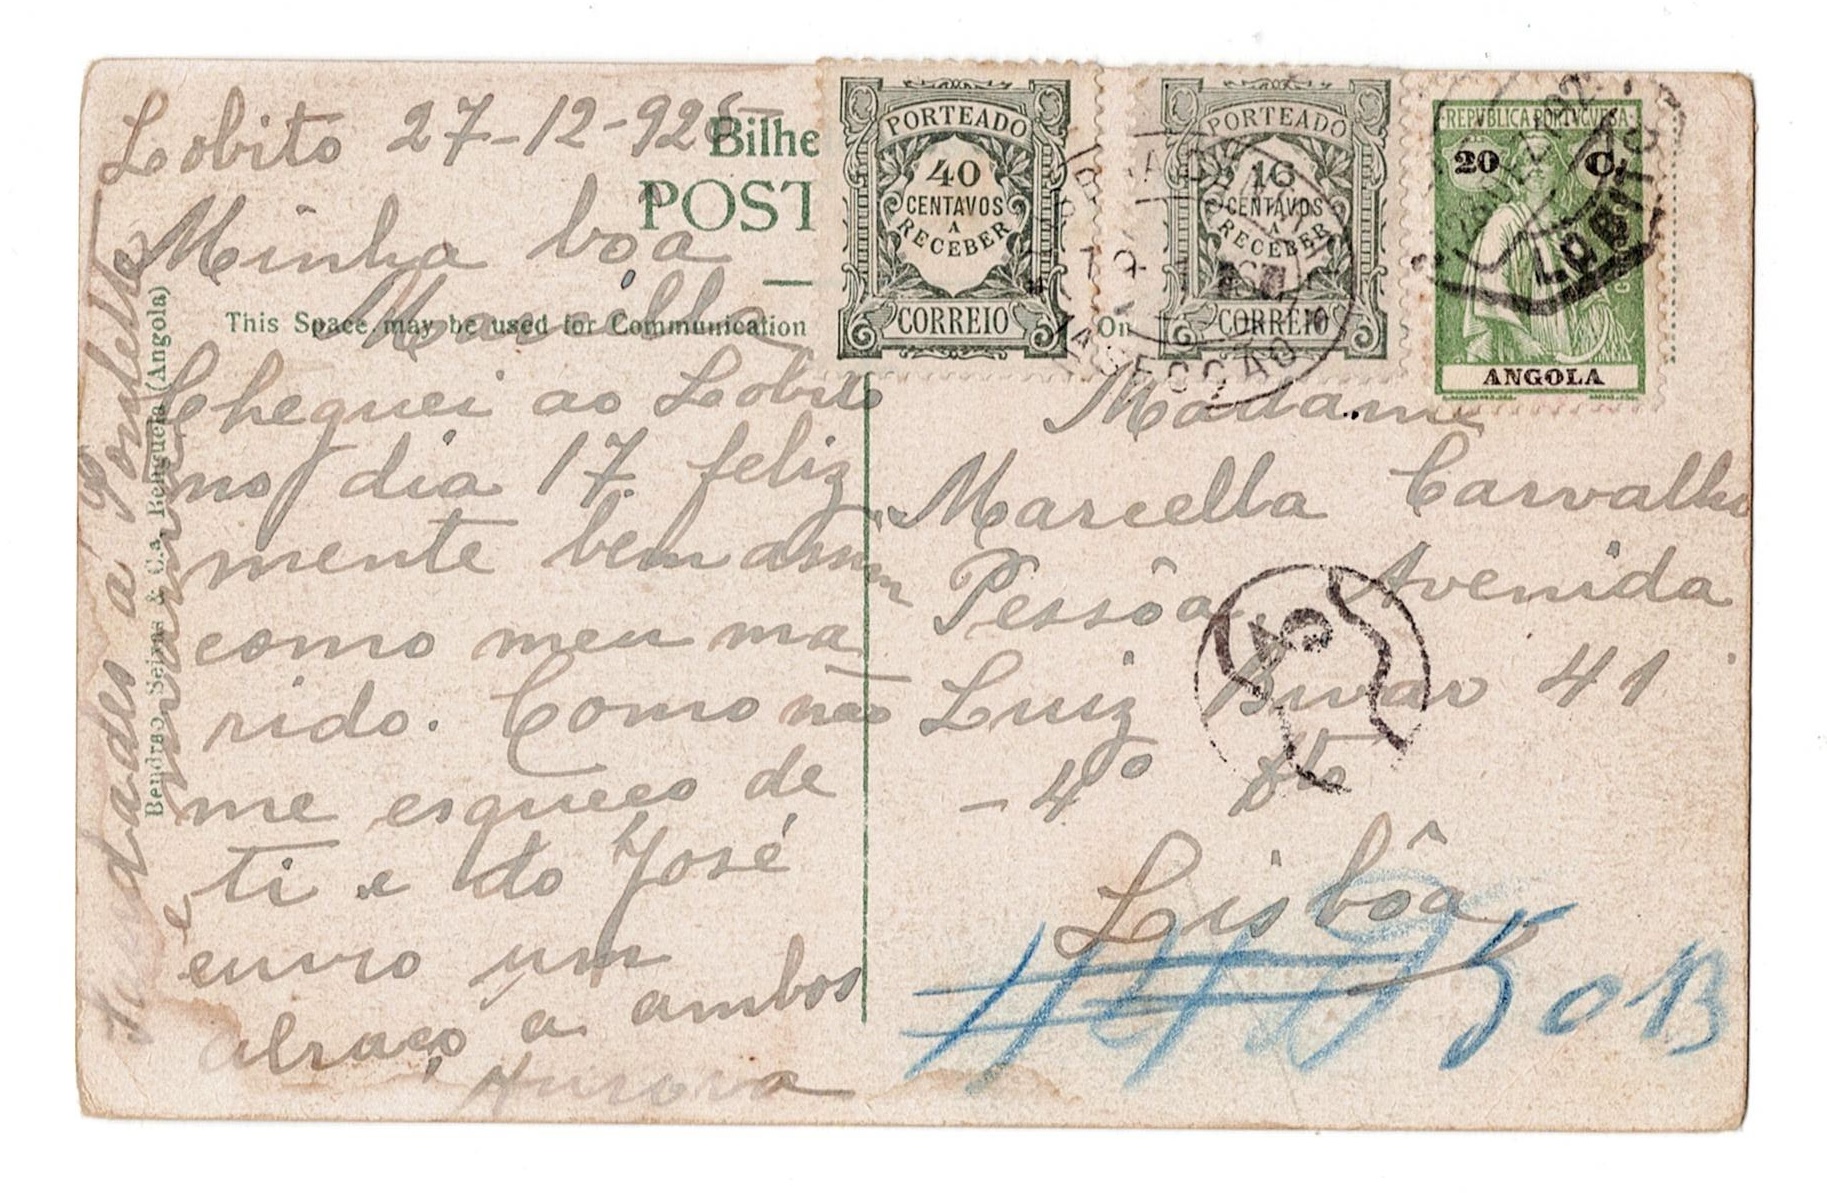 Lobito 27-12-926
Minha boa
Marcella
Cheguei ao Lobito
no dia 17 feliz
mente bem assim
como meu ma
rido. Como não
me esqueço de
ti e do José
envio um
abraço a ambos
Aurora
Saudades a
Bilhe
POST
This Space may be used for Communication
On
Bendrao, Seixas & C.a, Benguela (Angola)
PORTEADO
40
CENTAVOS
A
RECEBER
CORREIO
PORTEADO
10
CENTAVOS
A
RECEBER
CORREIO
REPVBLICA PORTVGVESA
20 C.
ANGOLA
LOBITO
SECÇÃO
Madame
Marcella Carvalho
Pessôa, Avenida
Luiz Bivar 41
- 4º Dto
Lisbôa
50B